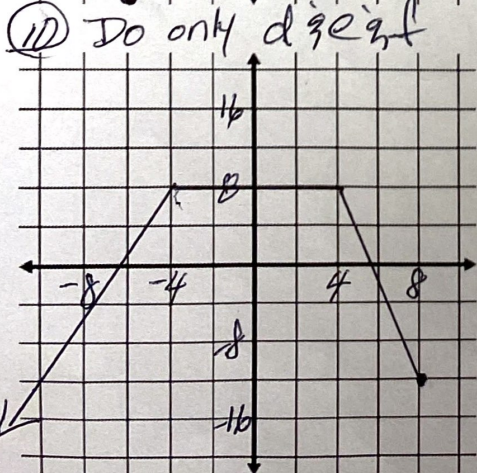 10 Do only d & e & f
16
8
-8 -4 4 8
-8
-16